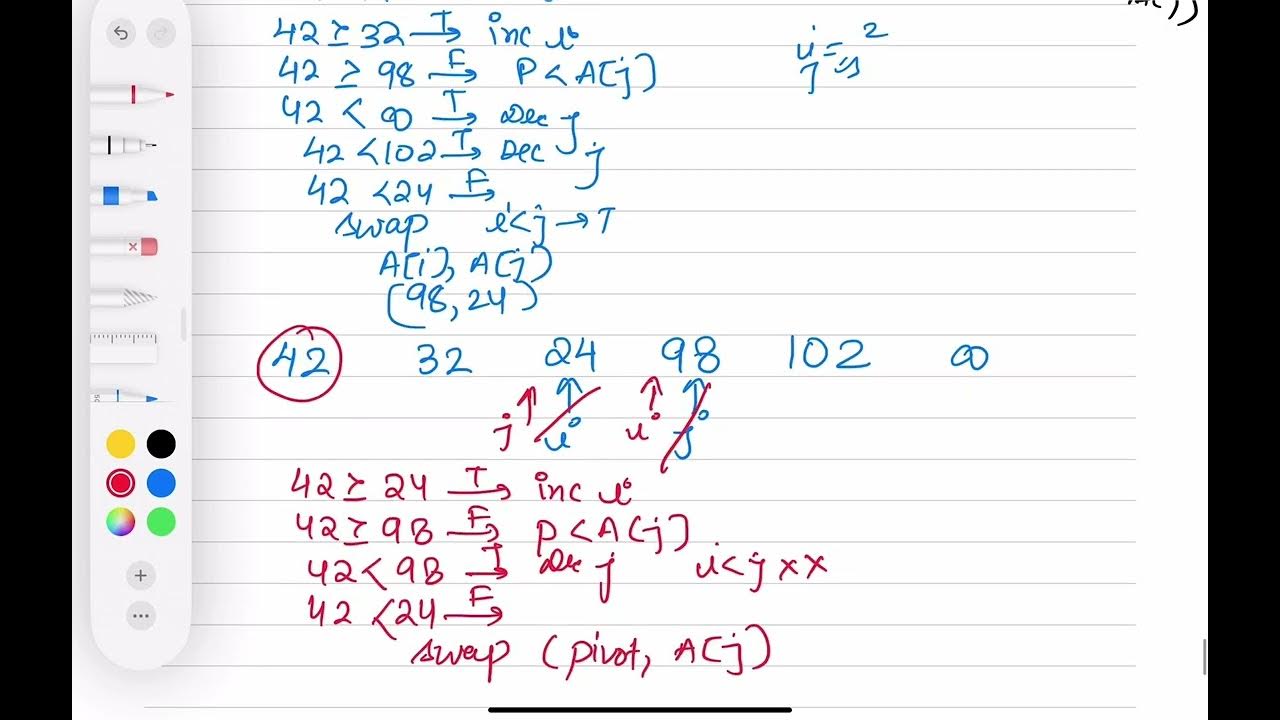 42 ≥ 32 T→ inc i
i = 2
42 ≥ 98 F→ P < A[j]
j = 3
42 < ∞ T→ Dec j
42 < 102 T→ Dec j
42 < 24 F→
swap i < j → T
A[i], A[j]
(98, 24)
42 32 24 98 102 ∞
j i i j
42 ≥ 24 T→ inc i
42 ≥ 98 F→ P < A[j]
42 < 98 T→ Dec j i < j x x
42 < 24 F→
swap (pivot, A[j])